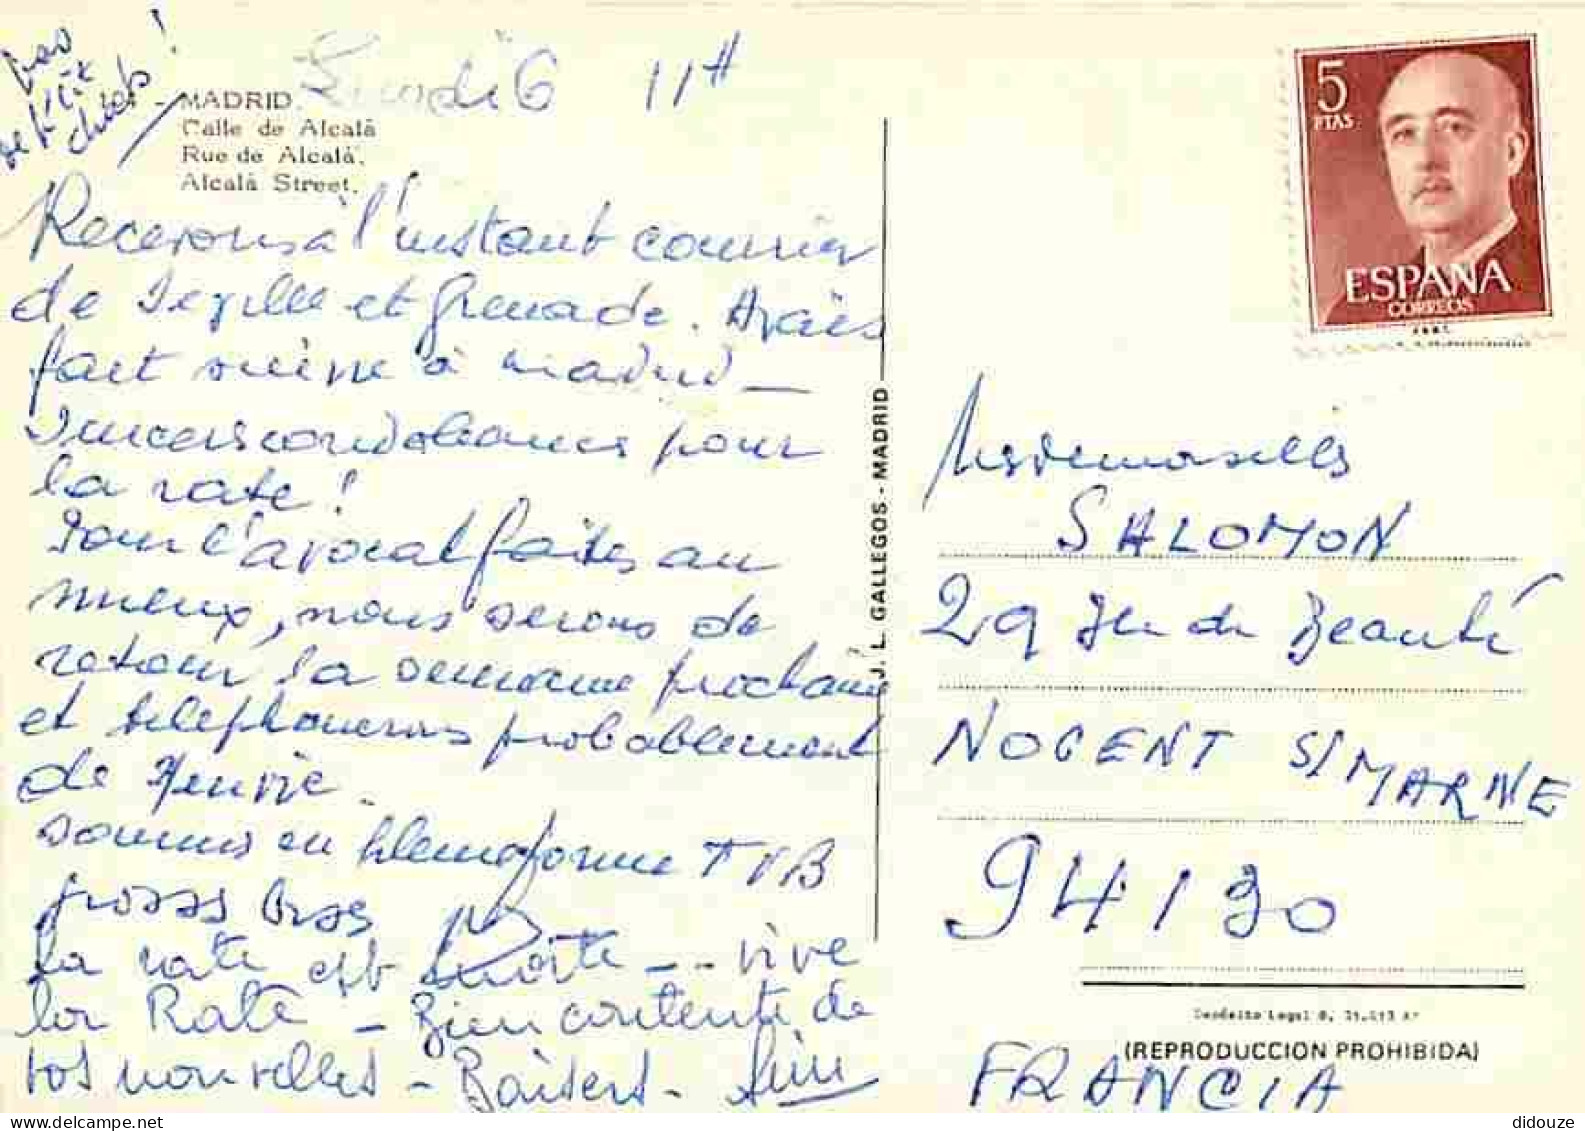 pas
se
chaud !
104 - MADRID.
Calle de Alcalá
Rue de Alcalá.
Alcalá Street.
Lundi 6 11H
Recevons à l'instant courrier
de Seville et Grenade. Avais
fait suivre à Madrid -
Sinceres condoleances pour
la rate !
Pour l'avocat faites au
mieux, nous serons de
retour la semaine prochaine
et telephonerons probablement
de
sommes en pleine forme T V B
grosses bises
la rate est morte - - vive
la Rate - Bien contente de
vos nouvelles - Baisers -
J. L. GALLEGOS - MADRID
5
PTAS
ESPAÑA
CORREOS
Mesdemoiselles
SALOMON
29 Ile de Beauté
NOGENT S/ MARNE
94130
FRANCIA
Depósito Legal B.
(REPRODUCCION PROHIBIDA)
didouze